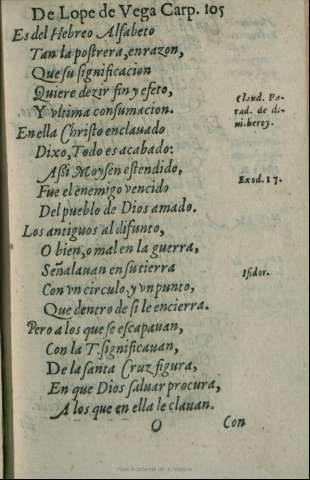 De Lope de Vega Carp. 105
Es del Hebreo Alfabeto
Tan la postrera, en razon,
Que su significacion
Quiere dezir fin y efeto,
Y vltima consumacion.
Claud. Pa-
rad. de di-
ui. heroy.
En ella Christo enclauado
Dixo, Todo es acabado:
Assi Moysen estendido,
Exod. 17.
Fue el enemigo vencido
Del pueblo de Dios amado.
Los antiguos al difunto,
O bien, o mal en la guerra,
Señalauan en su tierra
Isidor.
Con vn circulo, y vn punto,
Que dentro de si le encierra.
Pero a los que se escapauan,
Con la T significauan,
De la santa Cruz figura,
En que Dios saluar procura,
A los que en ella le clauan.
O Con
Real Academia de la Historia